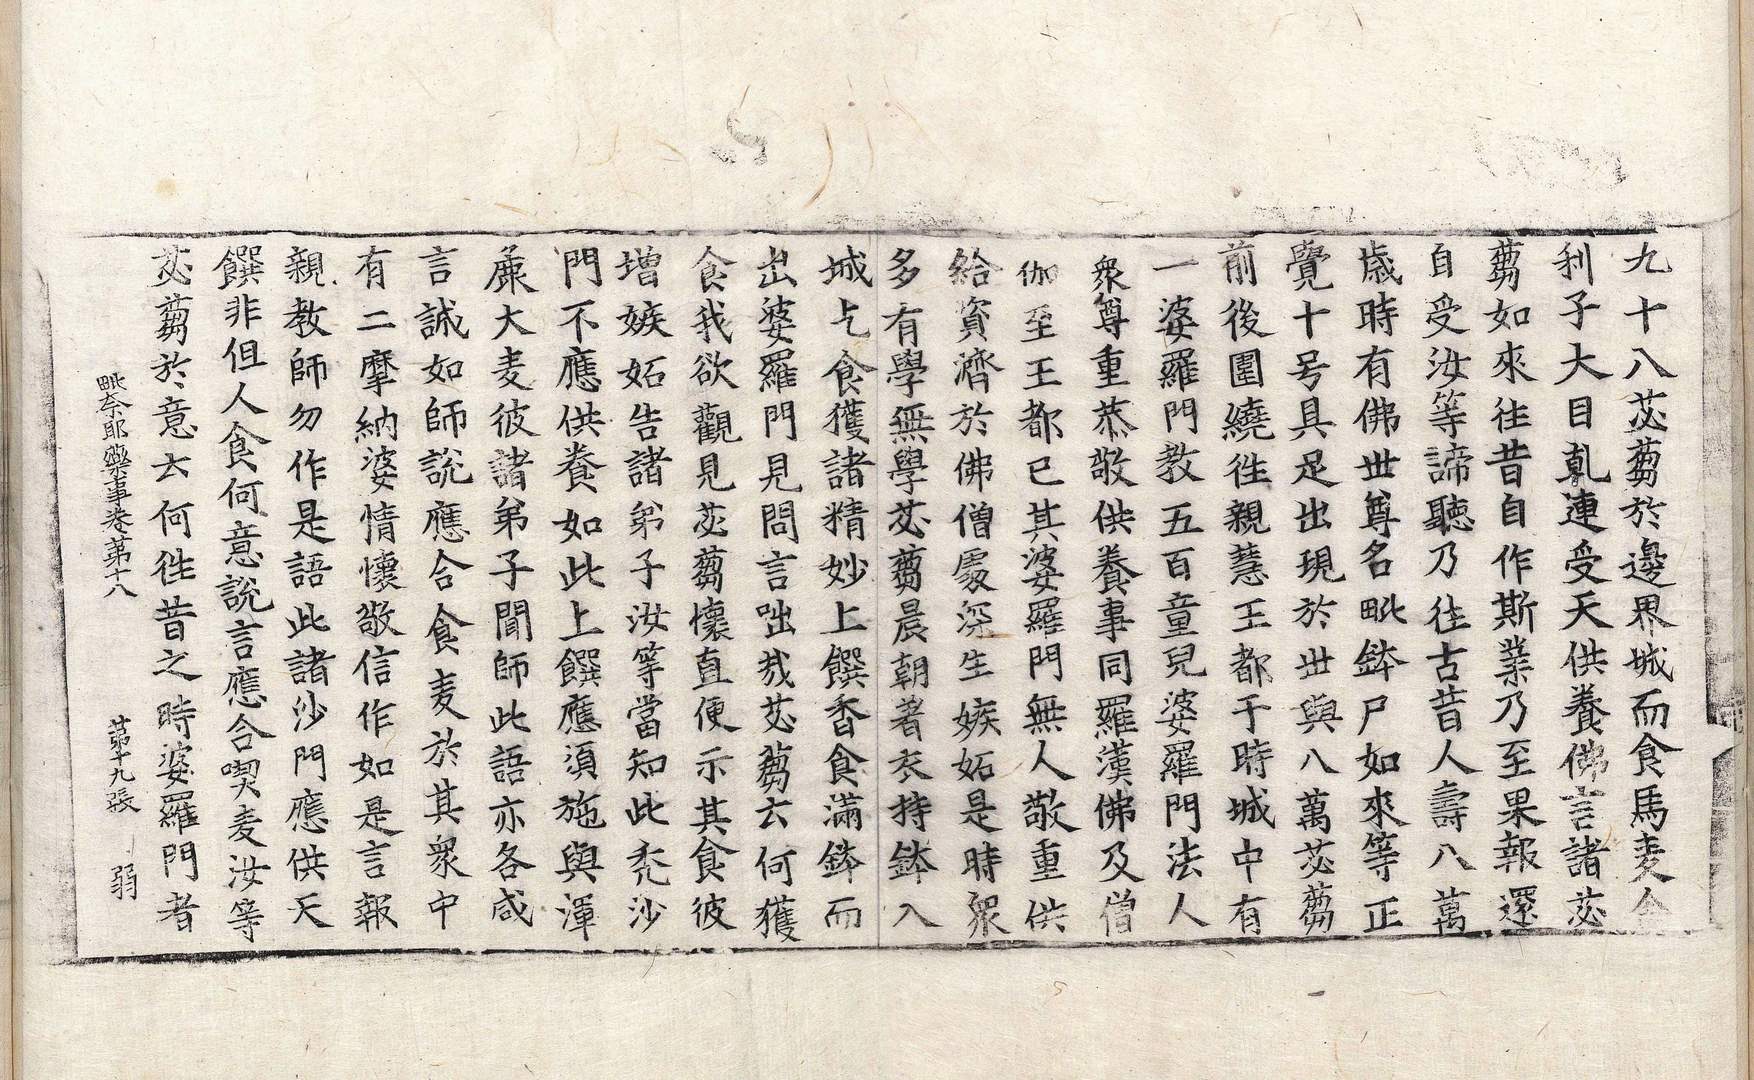 九十八苾蒭於邊界城而食馬麦舍
利子大目乹連受天供養佛言諸苾
蒭如來往昔自作斯業乃至果報還
自受汝等諦聽乃往古昔人壽八萬
歳時有佛世尊名毗鉢尸如來等正
覺十号具足出現於世與八萬苾蒭
前後圍繞徃親慧王都于時城中有
一婆羅門教五百童兒婆羅門法人
衆尊重恭敬供養事同羅漢佛及僧
伽至王都已其婆羅門無人敬重供
給資濟於佛僧處深生嫉妬是時衆
多有學無學苾蒭晨朝著衣持鉢入
城乞食獲諸精妙上饌香食滿鉢而
出婆羅門見問言咄㢤苾蒭云何獲
食我欲觀見苾蒭懷直便示其食彼
增嫉妬告諸弟子汝等當知此禿沙
門不應供養如此上饌應須施與渾
麁大麦彼諸弟子聞師此語亦各咸
言誠如師說應合食麦於其衆中
有二摩納婆情懷敬信作如是言報
親教師勿作是語此諸沙門應供天
饌非但人食何意說言應合喫麦汝等
苾蒭於意云何徃昔之時婆羅門者
毗奈耶藥事卷第十八 第十九張 弱